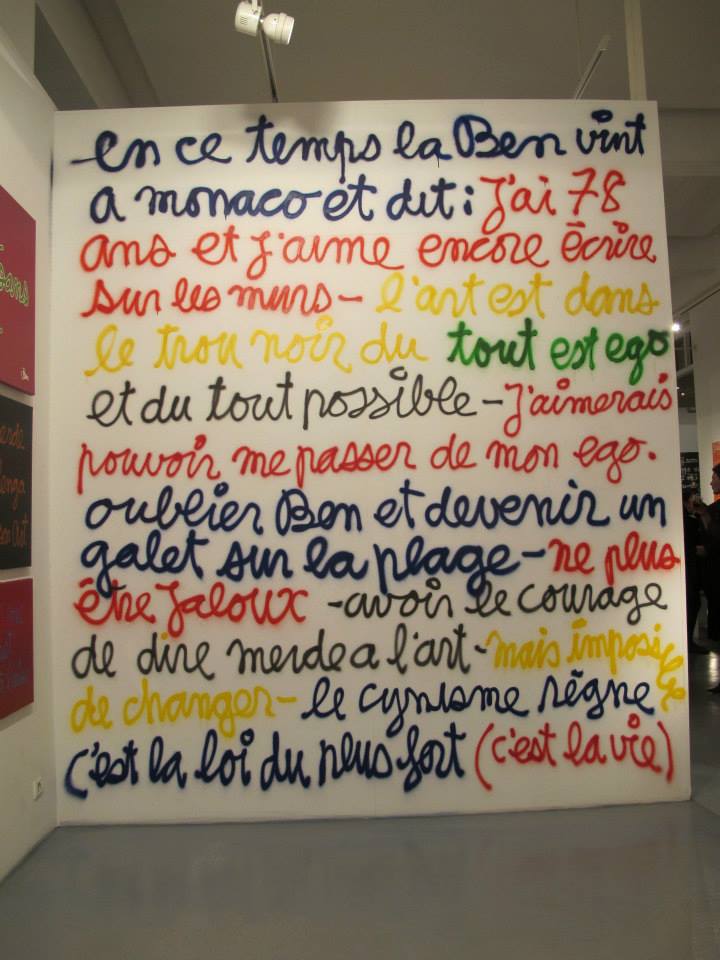 en ce temps la Ben vint
a monaco et dit : J'ai 78
ans et j'aime encore écrire
sur les murs - l'art est dans
le trou noir du tout est ego
et du tout possible - J'aimerais
pouvoir me passer de mon ego.
oublier Ben et devenir un
galet sur la plage - ne plus
être Jaloux - avoir le courage
de dire merde a l'art - mais impossible
de changer - le cynisme règne
c'est la loi du plus fort (c'est la vie)